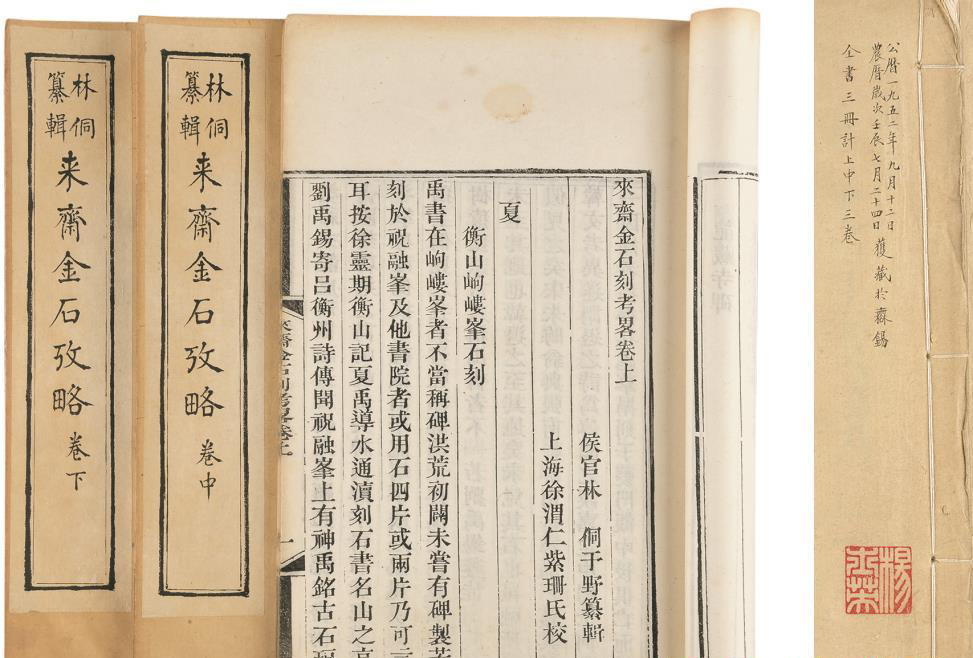 林侗
纂輯
来齋金石攷略 卷下
林侗
纂輯
来齋金石攷略 卷中
來齋金石刻考畧卷上
侯官林　侗于野纂輯
上海徐渭仁紫珊氏校
夏
衡山岣嶁峯石刻
禹書在岣嶁峯者不當稱碑洪荒初闢未嘗有碑製
刻於祝融峯及他書院者或用石四片或兩片乃可
耳按徐靈期衡山記夏禹導水通瀆刻石書名山之高
劉禹錫寄呂衡州詩傳聞祝融峯上有神禹銘古石
來齋金石刻考畧卷上
一
公曆一九五二年九月十二日
農曆歲次壬辰七月二十四日 獲藏於森錫
仝書三冊計上中下三卷
楊